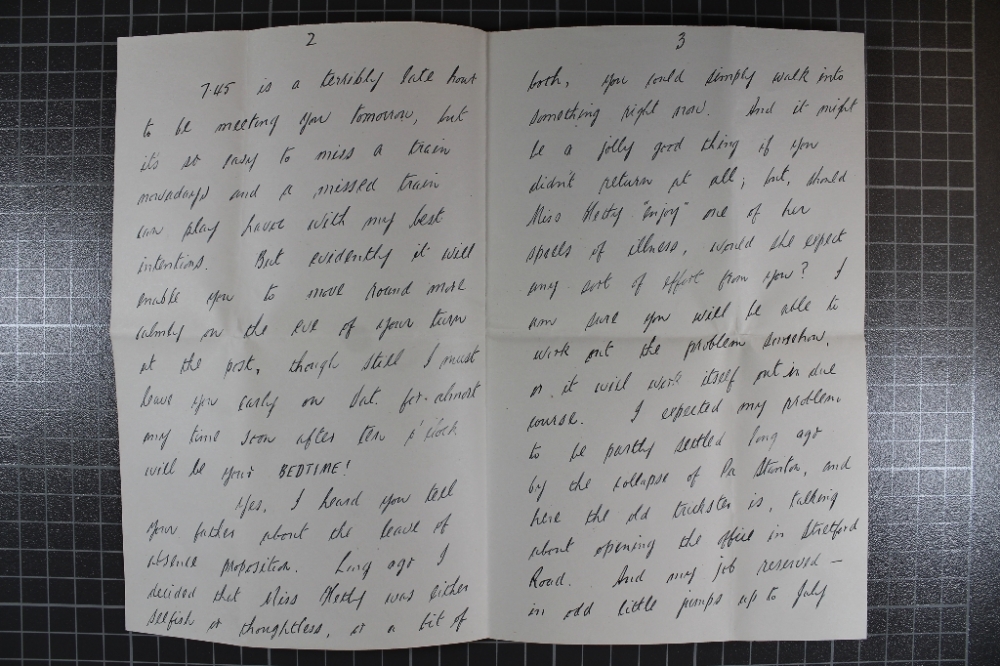 2
7.45 is a terribly late hour
to be meeting you tomorrow, but
it's so easy to miss a train
nowadays and a missed train
can play havoc with my best
intentions. But evidently it will
enable you to move round more
calmly on the eve of your turn
at the post, though still I must
leave you early on Sat. for almost
my time soon after ten o'clock
will be your BEDTIME!
Yes, I heard you tell
your father about the leave of
absence proposition. Long ago I
decided that Miss Hetty was either
selfish or thoughtless, or a bit of
3
both, you could simply walk into
something right now. And it might
be a jolly good thing if you
didn't return at all; but, should
Miss Hetty "enjoy" one of her
spells of illness, would she expect
any sort of effort from you? I
am sure you will be able to
work out the problem somehow,
or it will work itself out in due
course. I expected my problem
to be partly settled long ago
by the collapse of Pa Stanton, and
here the old trickster is, talking
about opening the office in Stretford
Road. And my job reserved —
in odd little jumps up to July